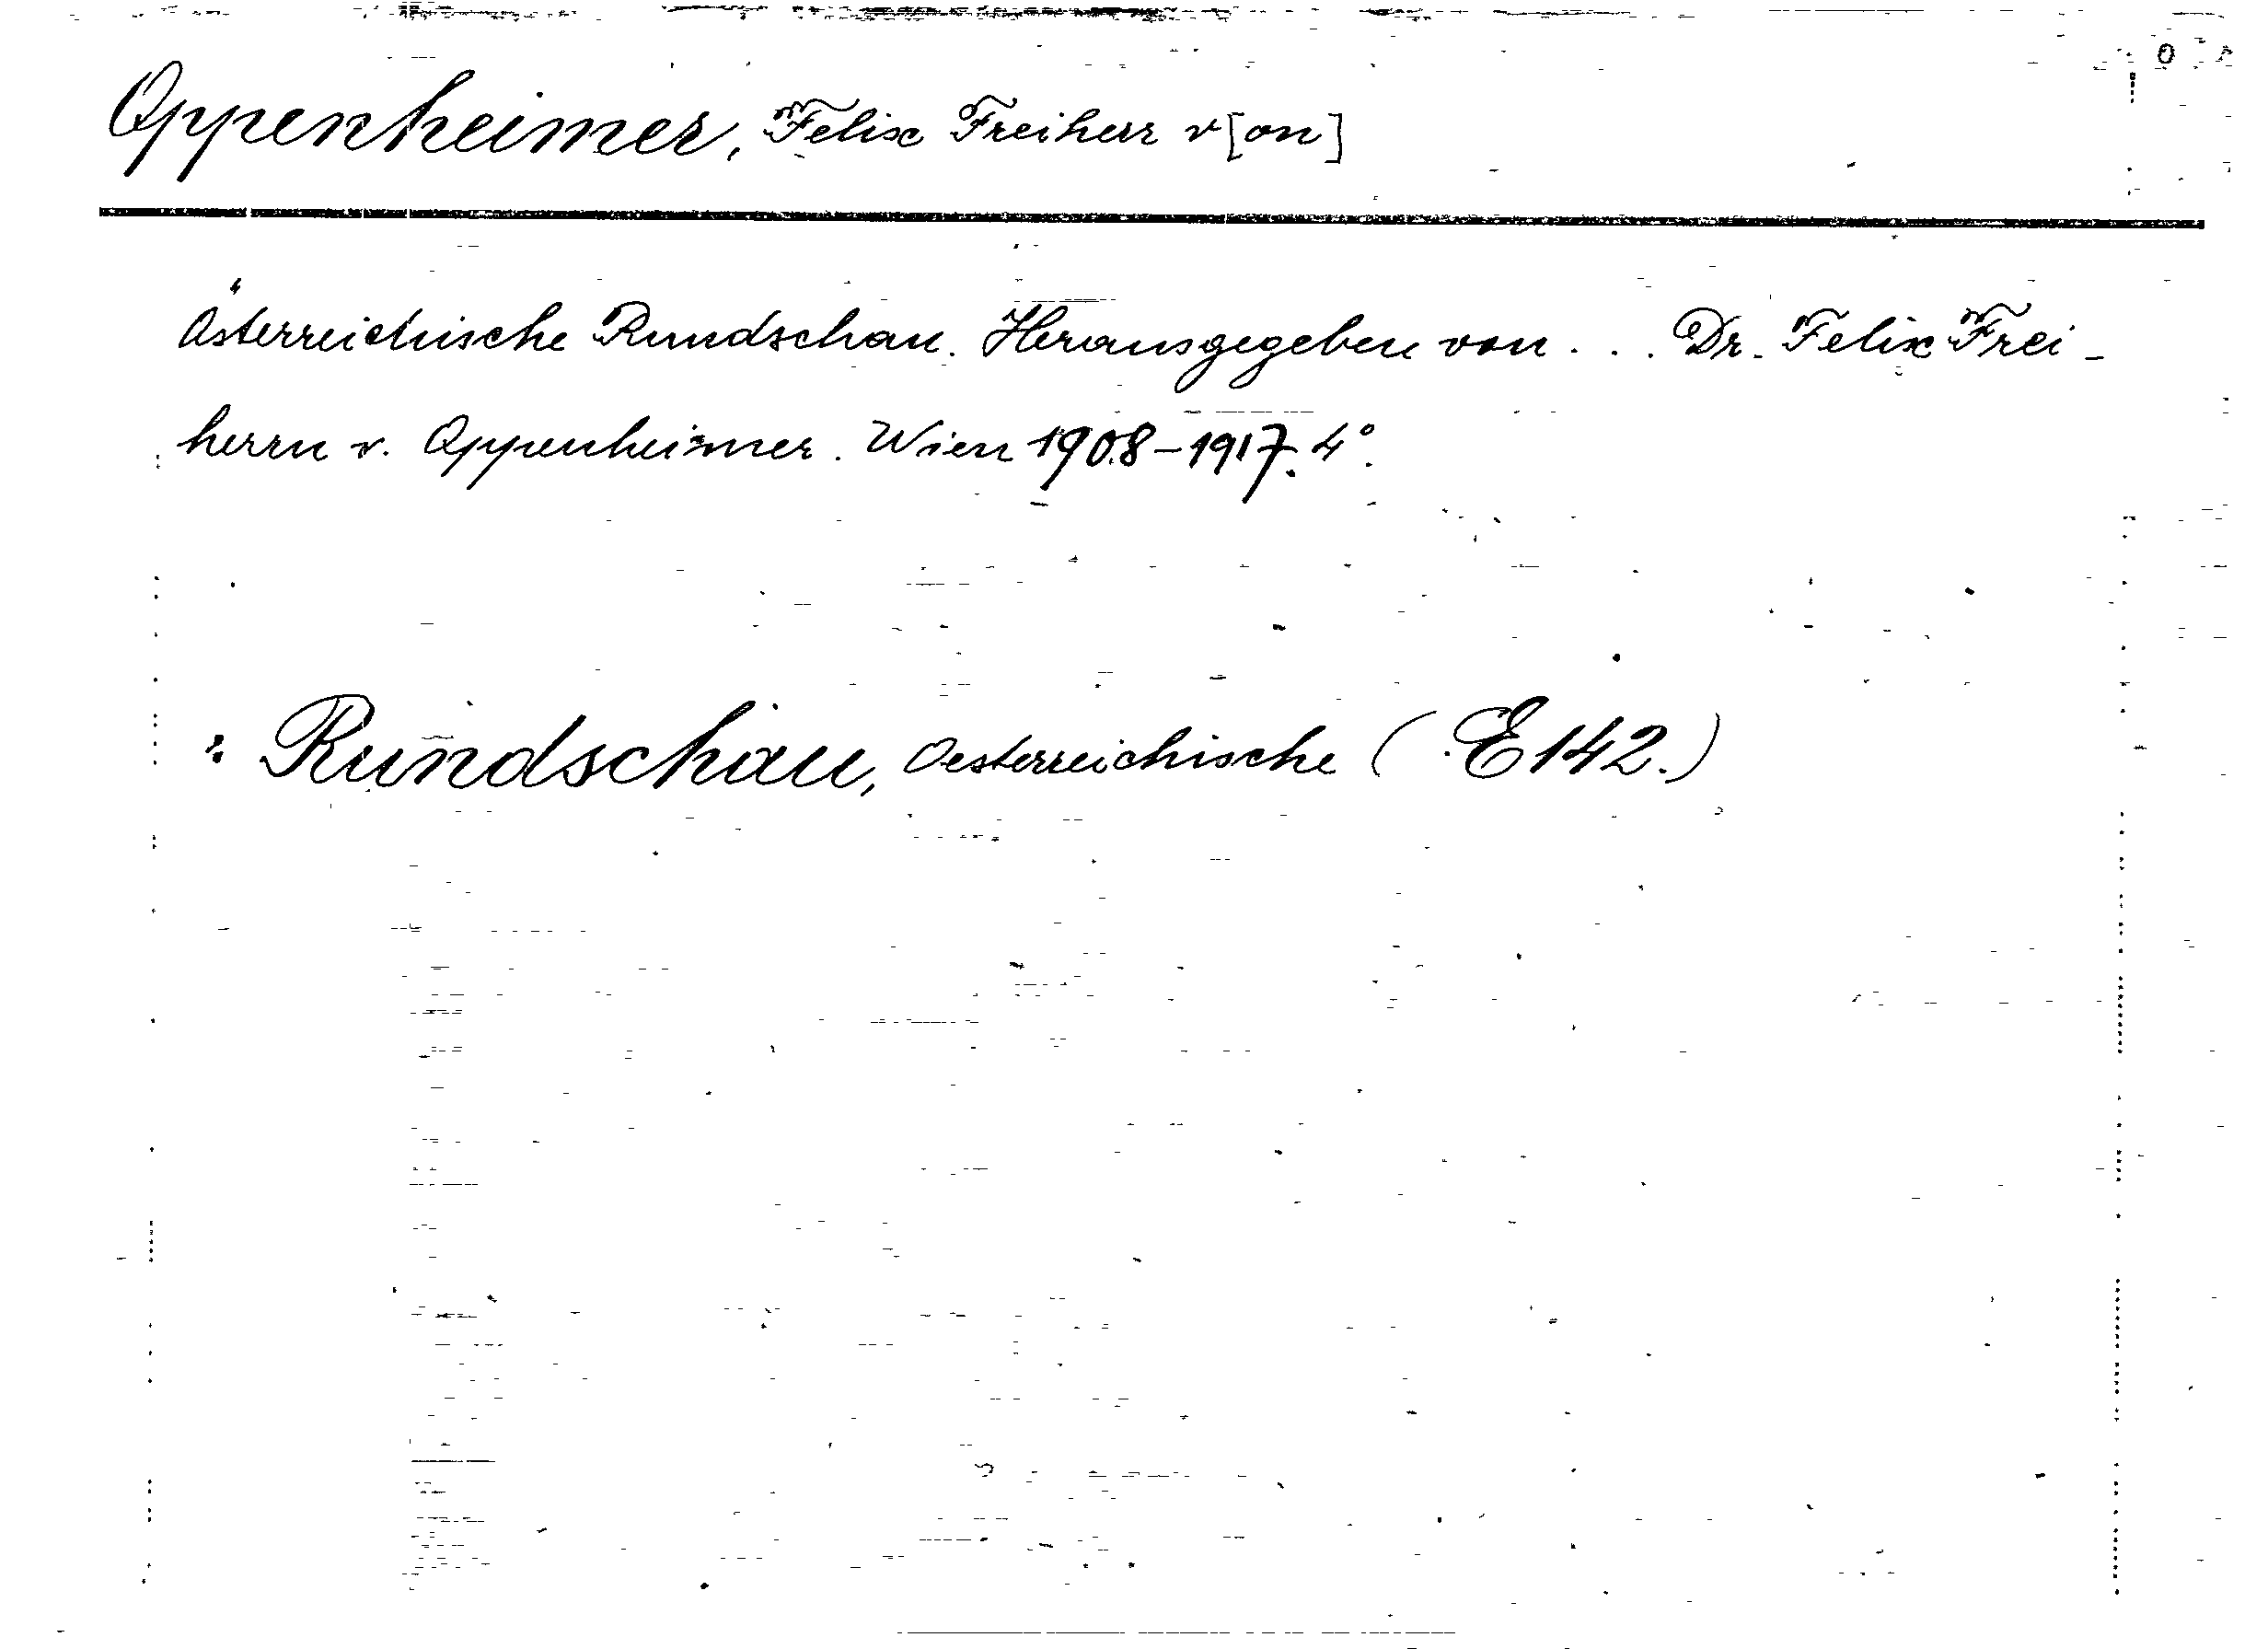 Oppenheimer, Felix Freiherr v[on]
Österreichische Rundschau. Herausgegeben von . . . Dr. Felix Frei-
herrn v. Oppenheimer. Wien 1908-1917. 4°.
: Rundschau, Oesterreichische (E142.)